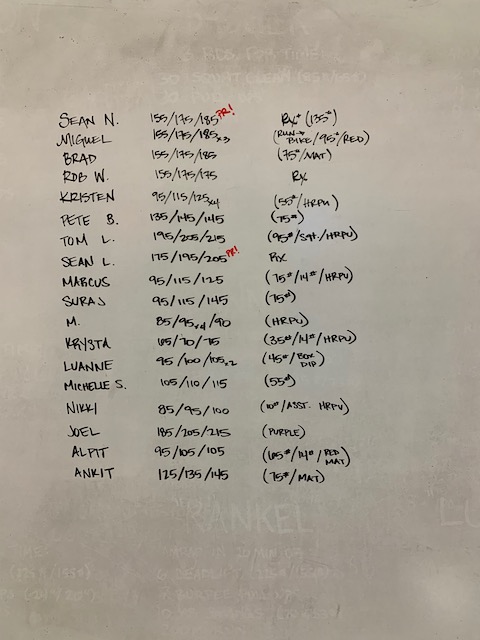 SEAN N. 155/175/185 PR! RX+ (135#)
MIGUEL 155/175/185x3 (RUN→BIKE/95#/RED)
BRAD 155/175/185 (75#/MAT)
ROB W. 155/175/175 RX
KRISTEN 95/115/125x4 (55#/HRPU)
PETE B. 135/145/145 (75#)
TOM L. 195/205/215 (95#/Sqt./HRPU)
SEAN L. 175/195/205 PR! RX
MARCUS 95/115/125 (75#/14#/HRPU)
SURAJ 95/115/145 (75#)
M. 85/95x4/90 (HRPU)
KRYSTA 65/70/75 (35#/14#/HRPU)
LUANNE 95/100/105x2 (45#/BOX DIP)
MICHELLE S. 105/110/115 (55#)
NIKKI 85/95/100 (10#/ASST. HRPU)
JOEL 185/205/215 (PURPLE)
ALPIT 95/105/105 (65#/14#/RED MAT)
ANKIT 125/135/145 (75#/MAT)
RANKEL